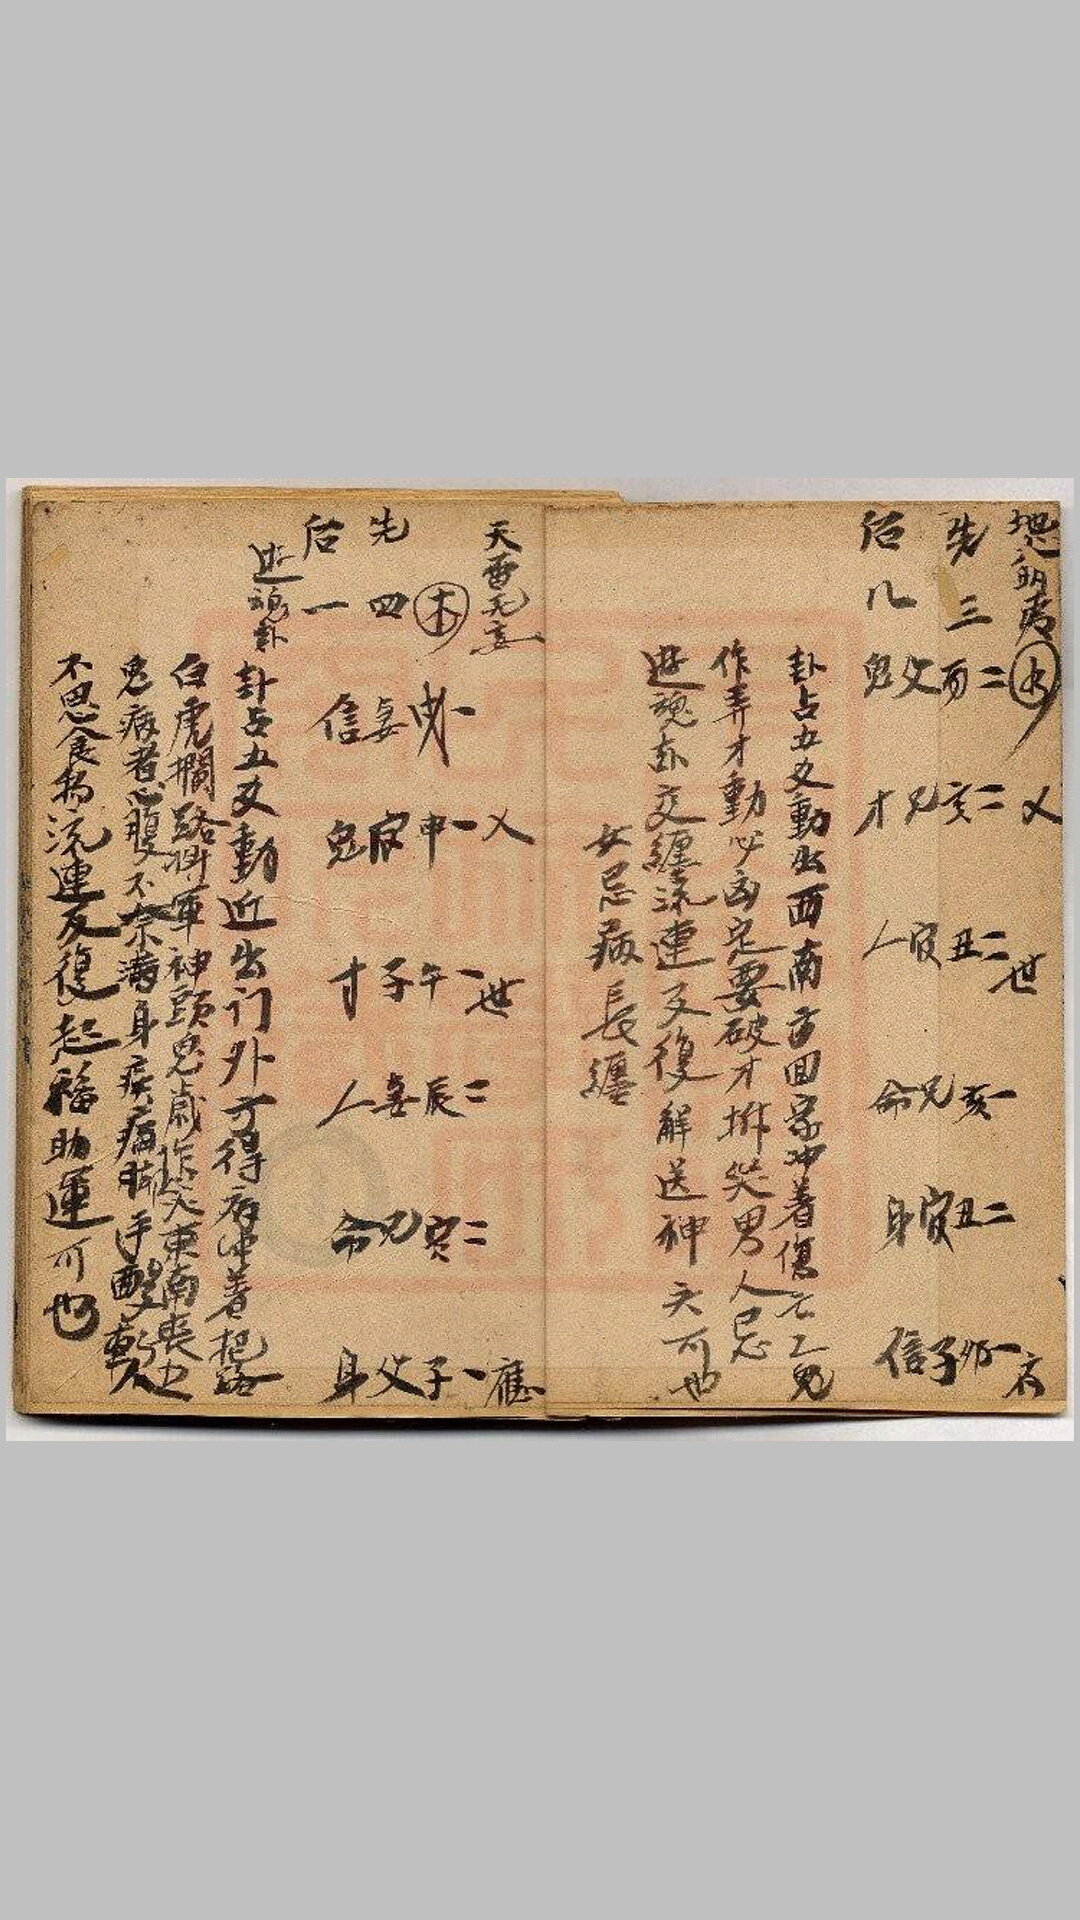 地火明夷 水
先 三
后 八
二 酉 父 鬼
乂 二 亥 兄 才
世 二 丑 官 人
一 亥 兄 命
二 丑 官 身
一 卯 子 信
卦占五爻動出西南方回家冲着傷亡之鬼
作弄才動必凶定要破才掛哭男人忌
遊魂卦交纏流連反復解送神天可也
女忌病長纏
天雷无妄
木
先 四
后 一
遊魂卦
一 妻 信
乂 一 申 官 鬼
世 一 午 子 才
二 辰 妻 人
二 寅 兄 命
應 一 子 父 身
卦占五爻動近出门外方得病冲着把路
白虎攔路將軍神頭鬼戲作笑東南喪之
鬼病者心腹不奈滿身疾痛脚手酸軟
不思食物流連反復起福助運可也